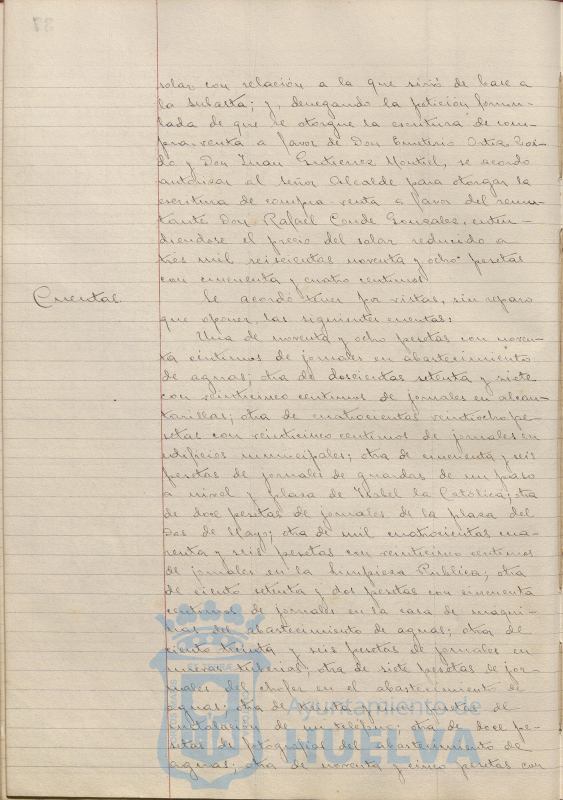 37
solar con relación a la que sirvió de base a
la subasta; y, denegando la petición formu-
lada de que se otorgue la escritura de com-
pra-venta a favor de Don Emeterio Ortiz
y Don Juan Gutierrez Montiel, se acordo
autorizar al señor Alcalde para otorgar la
escritura de compra-venta a favor del rema-
tante Don Rafael Conde Gonzalez, enten-
diendose el precio del solar reducido a
tres mil seiscientas noventa y ocho pesetas
con cincuenta y cuatro centimos.
Cuentas. Se acordó tener por vistas, sin reparo
que oponer, las siguientes cuentas:
Una de noventa y ocho pesetas con noven-
ta centimos de jornales en abastecimiento
de aguas; otra de doscientas setenta y siete
con veinticinco centimos de jornales en alcan-
tarillas; otra de cuatrocientas veintiocho pe-
setas con veinticinco centimos de jornales en
edificios municipales; otra de cincuenta y seis
pesetas de jornales de guardas de un paso
a nivel y plaza de Isabel la Católica; otra
de doce pesetas de jornales de la plaza del
Dos de Mayo; otra de mil cuatrocientas cua-
renta y seis pesetas con veinticinco centimos
de jornales en la limpieza Publica; otra
de ciento setenta y dos pesetas con cincuenta
centimos de jornales en la casa de maqui-
nas del abastecimiento de aguas; otra de
ciento treinta y seis pesetas de jornales en
nuevas tuberias; otra de siete pesetas de jor-
nales del chofer en el abastecimiento de
aguas; otra de treinta y pesetas de
instalacion de un telefono; otra de doce pe-
setas de fotografias del abastecimiento de
aguas; otra de noventa y cinco pesetas con
Ayuntamiento de
HUELVA